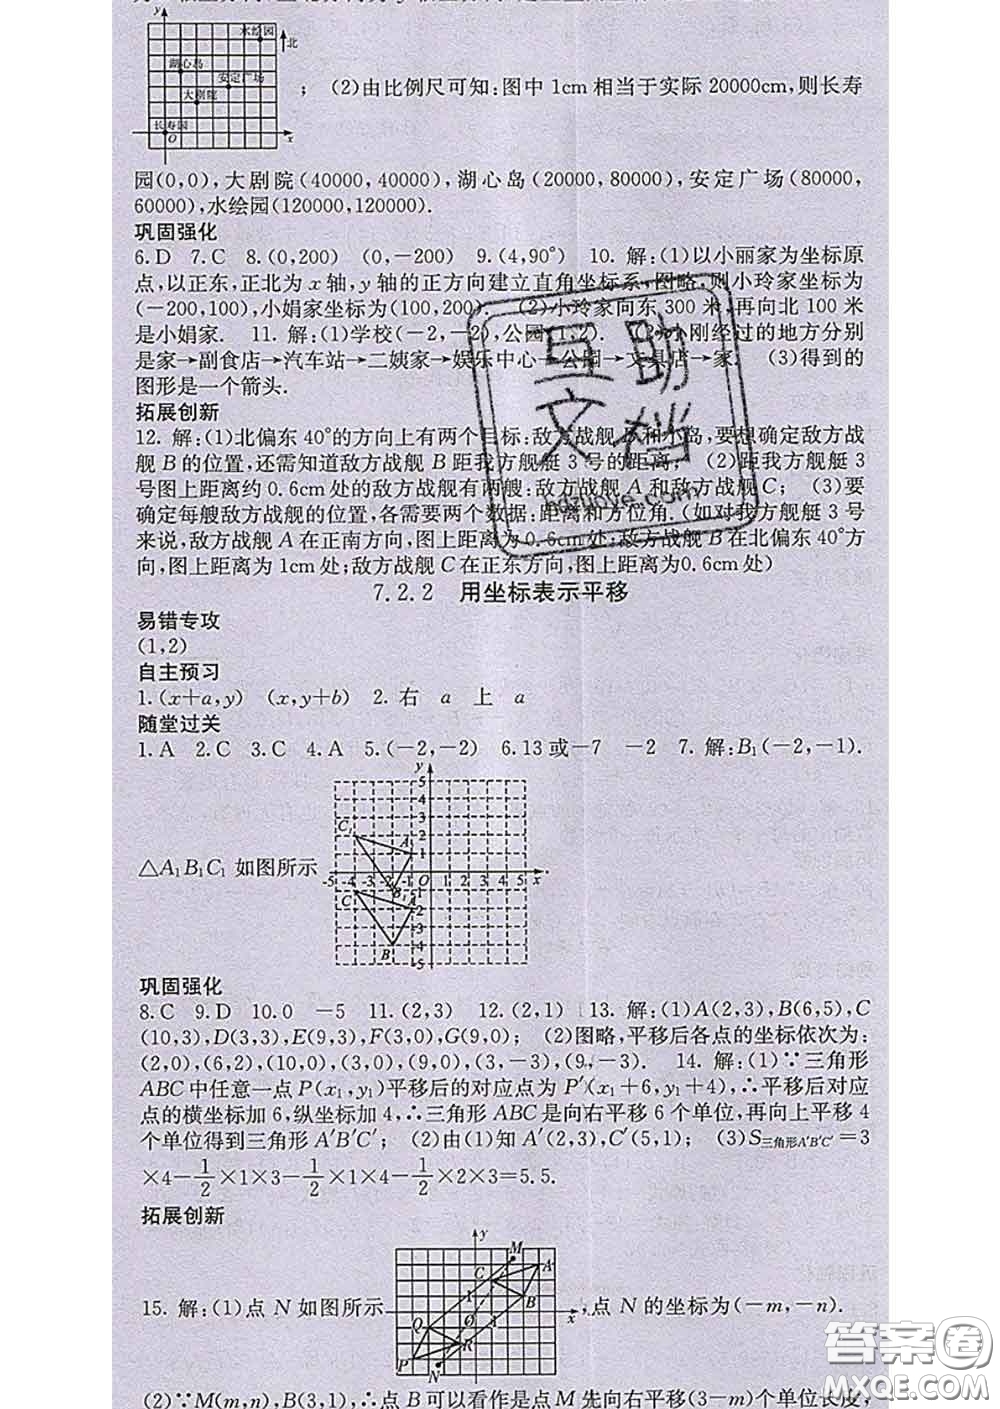 y
水绘园
北
湖心岛
安定广场
大剧院
长寿园
O
x
; (2)由比例尺可知:图中 1cm 相当于实际 20000cm,则长寿
园(0,0),大剧院(40000,40000),湖心岛(20000,80000),安定广场(80000,
60000),水绘园(120000,120000).
巩固强化
6.D 7.C 8.(0,200) (0,-200) 9.(4,90°) 10. 解:(1)以小丽家为坐标原
点,以正东,正北为 x 轴,y 轴的正方向建立直角坐标系,图略,则小玲家坐标为
(-200,100),小娟家坐标为(100,200). (2)小玲家向东 300 米,再向北 100 米
是小娟家. 11. 解:(1)学校(-2,-2),公园 小刚经过的地方分别
是家→副食店→汽车站→二姨家→娱乐中心→公园→文具店→家. (3)得到的
图形是一个箭头.
拓展创新
12. 解:(1)北偏东 40°的方向上有两个目标:敌方战舰 B 和小岛,要想确定敌方战
舰 B 的位置,还需知道敌方战舰 B 距我方舰艇 3 号的距离; (2)距我方舰艇 3
号图上距离约 0.6cm 处的敌方战舰有两艘:敌方战舰 A 和敌方战舰 C; (3)要
确定每艘敌方战舰的位置,各需要两个数据:距离和方位角.(如对我方舰艇 3 号
来说,敌方战舰 A 在正南方向,图上距离为 0.6cm 处;敌方战舰 B 在北偏东 40°方
向,图上距离为 1cm 处;敌方战舰 C 在正东方向,图上距离为0.6cm 处)
7.2.2 用坐标表示平移
易错专攻
(1,2)
自主预习
1.(x+a,y) (x,y+b) 2. 右 a 上 a
随堂过关
1.A 2.C 3.C 4.A 5.(-2,-2) 6.13 或-7 -2 7. 解:B₁(-2,-1).
△A₁B₁C₁ 如图所示
巩固强化
8.C 9.D 10.0 -5 11.(2,3) 12.(2,1) 13. 解:(1)A(2,3),B(6,5),C
(10,3),D(3,3),E(9,3),F(3,0),G(9,0); (2)图略,平移后各点的坐标依次为:
(2,0),(6,2),(10,0),(3,0),(9,0),(3,-3),(9,-3). 14. 解:(1)∵三角形
ABC 中任意一点 P(x₁,y₁)平移后的对应点为 P′(x₁+6,y₁+4),∴平移后对应
点的横坐标加 6,纵坐标加 4,∴三角形 ABC 是向右平移 6 个单位,再向上平移 4
个单位得到三角形 A′B′C′; (2)由(1)知 A′(2,3),C′(5,1); (3)S三角形A′B′C′=3
×4-1/2×1×3-1/2×1×4-1/2×2×3=5.5.
拓展创新
15. 解:(1)点 N 如图所示 ,点 N 的坐标为(-m,-n).
(2)∵M(m,n),B(3,1),∴点 B 可以看作是点 M 先向右平移(3-m)个单位长度,
互助文档
hdzhiye.com
答案圈
MXQE.COM